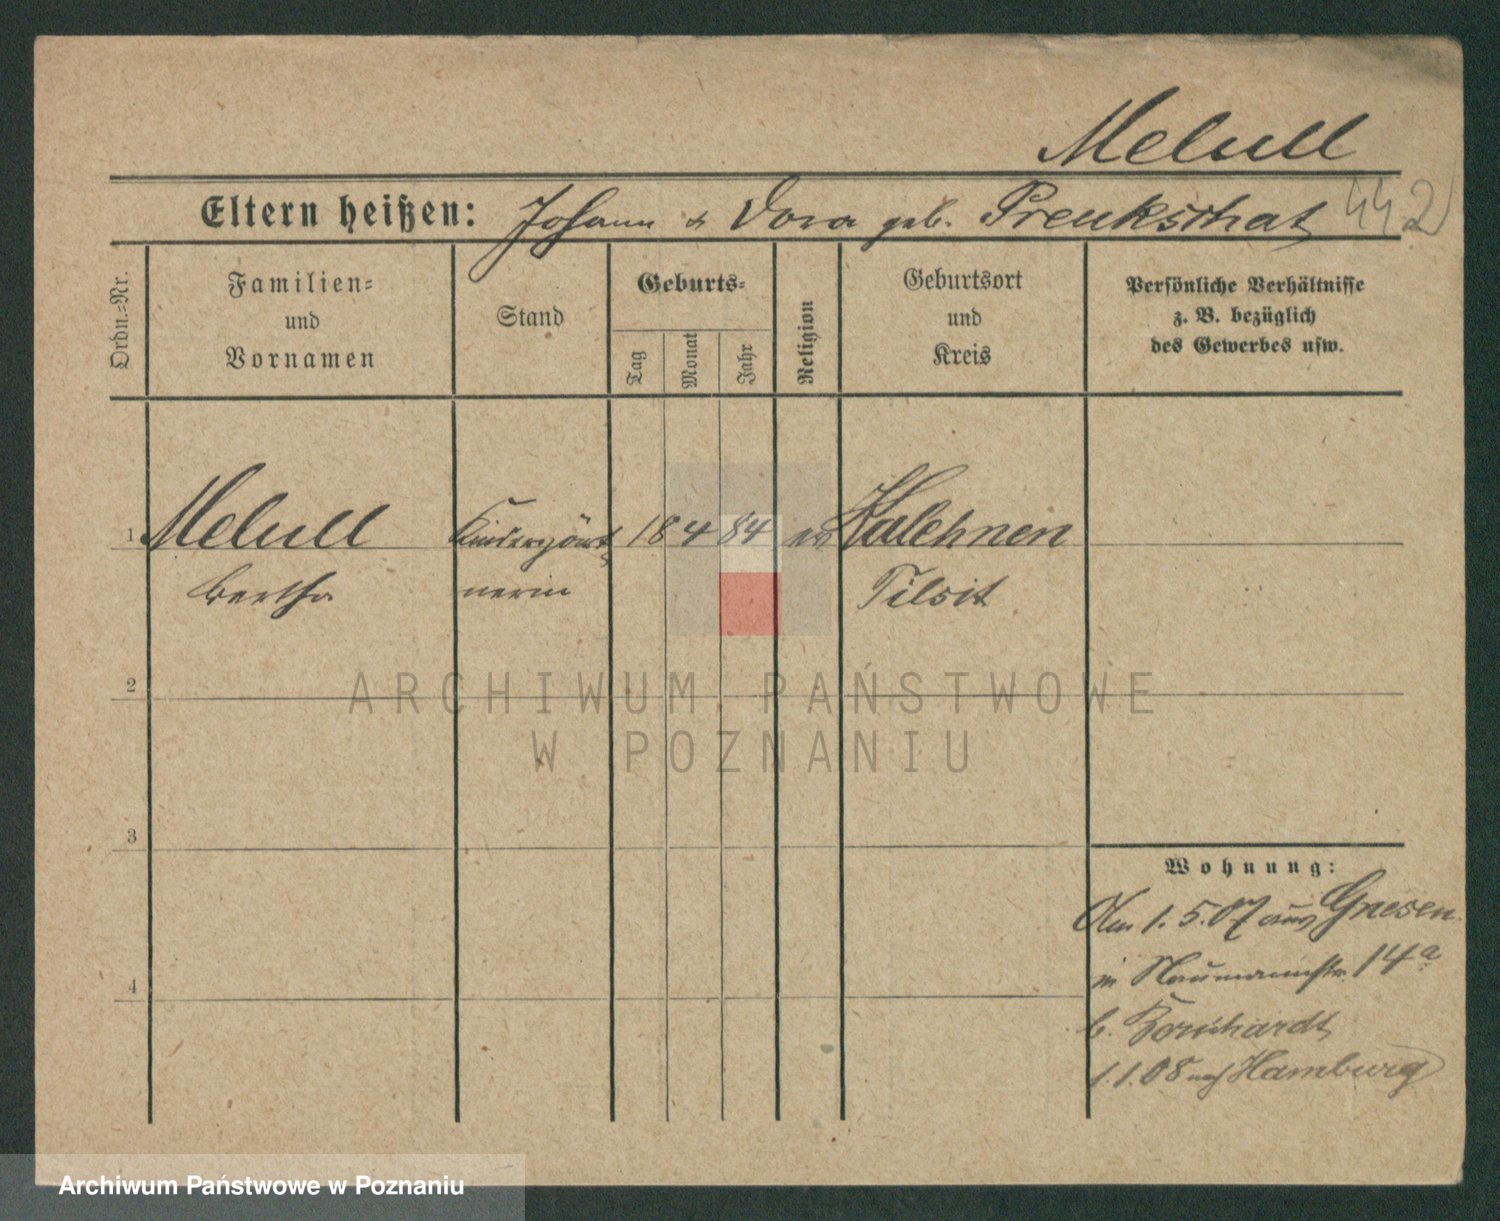 Melull
Eltern heißen: Johann & Dora geb. Preukschat 442
Ordn.-Nr.
Familien-
und
Vornamen
Stand
Geburts-
Tag
Monat
Jahr
Religion
Geburtsort
und
Kreis
Persönliche Verhältnisse
z. B. bezüglich
des Gewerbes usw.
1 Melull Kindergärt 18 4 84 ev Kalehnen
Bertha nerin Tilsit
2
ARCHIWUM PAŃSTWOWE
W POZNANIU
3
Wohnung:
Am 1.5.07 aus Gnesen
in Naumannstr. 14a
4
b. Bornhardt
1.1.08 nach Hamburg
Archiwum Państwowe w Poznaniu